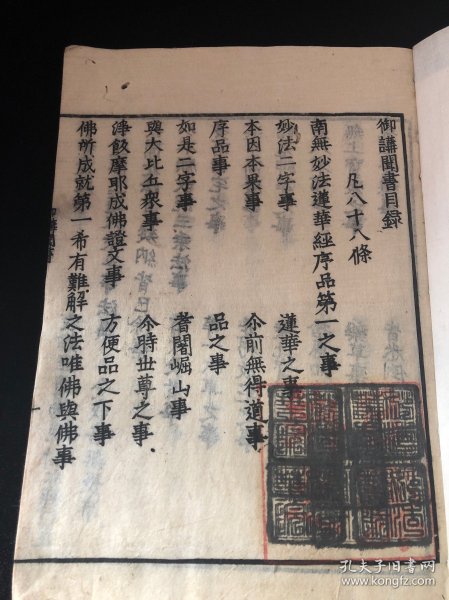 御講聞書目録
凡八十八條
南無妙法蓮華經序品第一之事
妙法二字事 蓮華之事
本因本果事 尒前無得道事
序品事 品之事
如是二字事 耆闍崛山事
與大比丘衆事 尒時世尊之事
淨飯摩耶成佛證文事 方便品之下事
佛所成就第一希有難解之法唯佛與佛事
孔夫子旧书网
www.kongfz.com